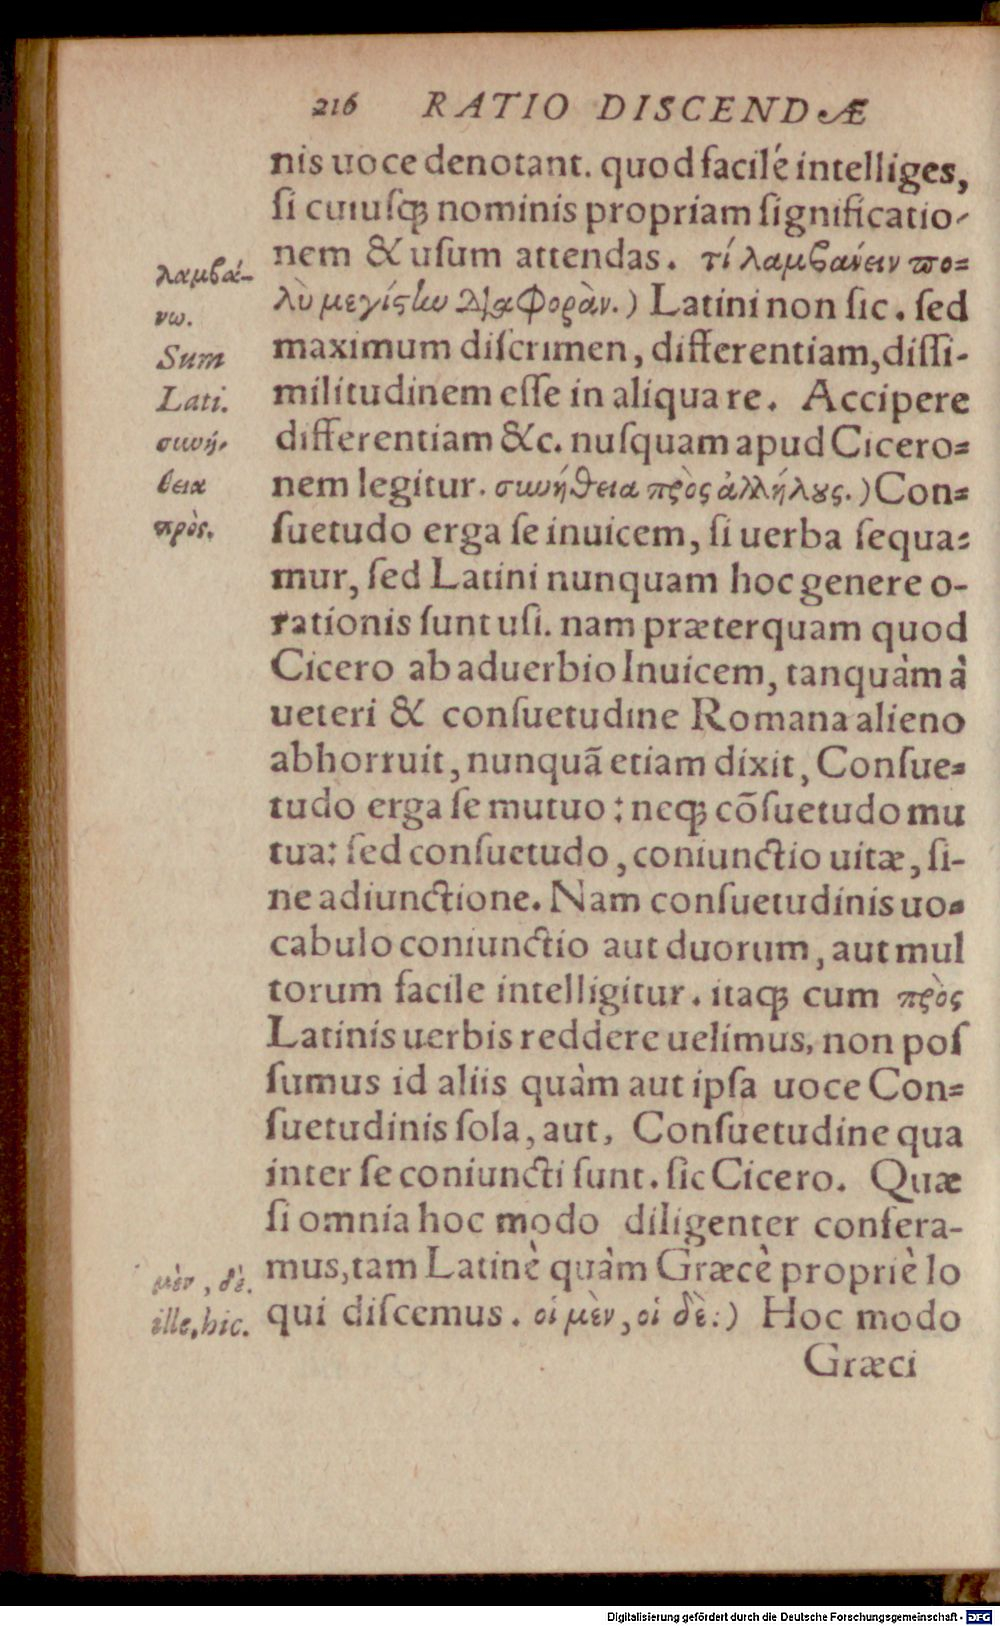 216 RATIO DISCENDÆ
nis uoce denotant. quod facilé intelliges,
si cuiusq́ꝫ nominis propriam significatio-
nem & usum attendas. τί λαμβάνειν πο=
λὺ μεγίστην διαφορὰν.) Latini non sic. sed
maximum discrimen, differentiam, dissi-
militudinem esse in aliqua re. Accipere
differentiam &c. nusquam apud Cicero=
nem legitur. συνήθεια πρὸς ἀλλήλους.) Con=
suetudo erga se inuicem, si uerba sequa=
mur, sed Latini nunquam hoc genere o-
rationis sunt usi. nam præterquam quod
Cicero ab aduerbio Inuicem, tanquàm à
ueteri & consuetudine Romana alieno
abhorruit, nunquã etiam dixit, Consue=
tudo erga se mutuo: neqꝫ cõsuetudo mu
tua: sed consuetudo, coniunctio uitæ, si-
ne adiunctione. Nam consuetudinis uo=
cabulo coniunctio aut duorum, aut mul
torum facile intelligitur. itaqꝫ cum πρὸς
Latinis uerbis reddere uelimus, non pos
sumus id aliis quàm aut ipsa uoce Con=
suetudinis sola, aut, Consuetudine qua
inter se coniuncti sunt. sic Cicero. Quæ
si omnia hoc modo diligenter confera-
mus, tam Latinè quàm Græcè propriè lo
qui discemus. οἱ μὲν, οἱ δὲ.) Hoc modo
Græci
λαμβά-
νω.
Sum
Lati.
συνή-
θεια
πρὸς.
μὲν, δὲ.
ille, hic.
Digitalisierung gefördert durch die Deutsche Forschungsgemeinschaft - DFG